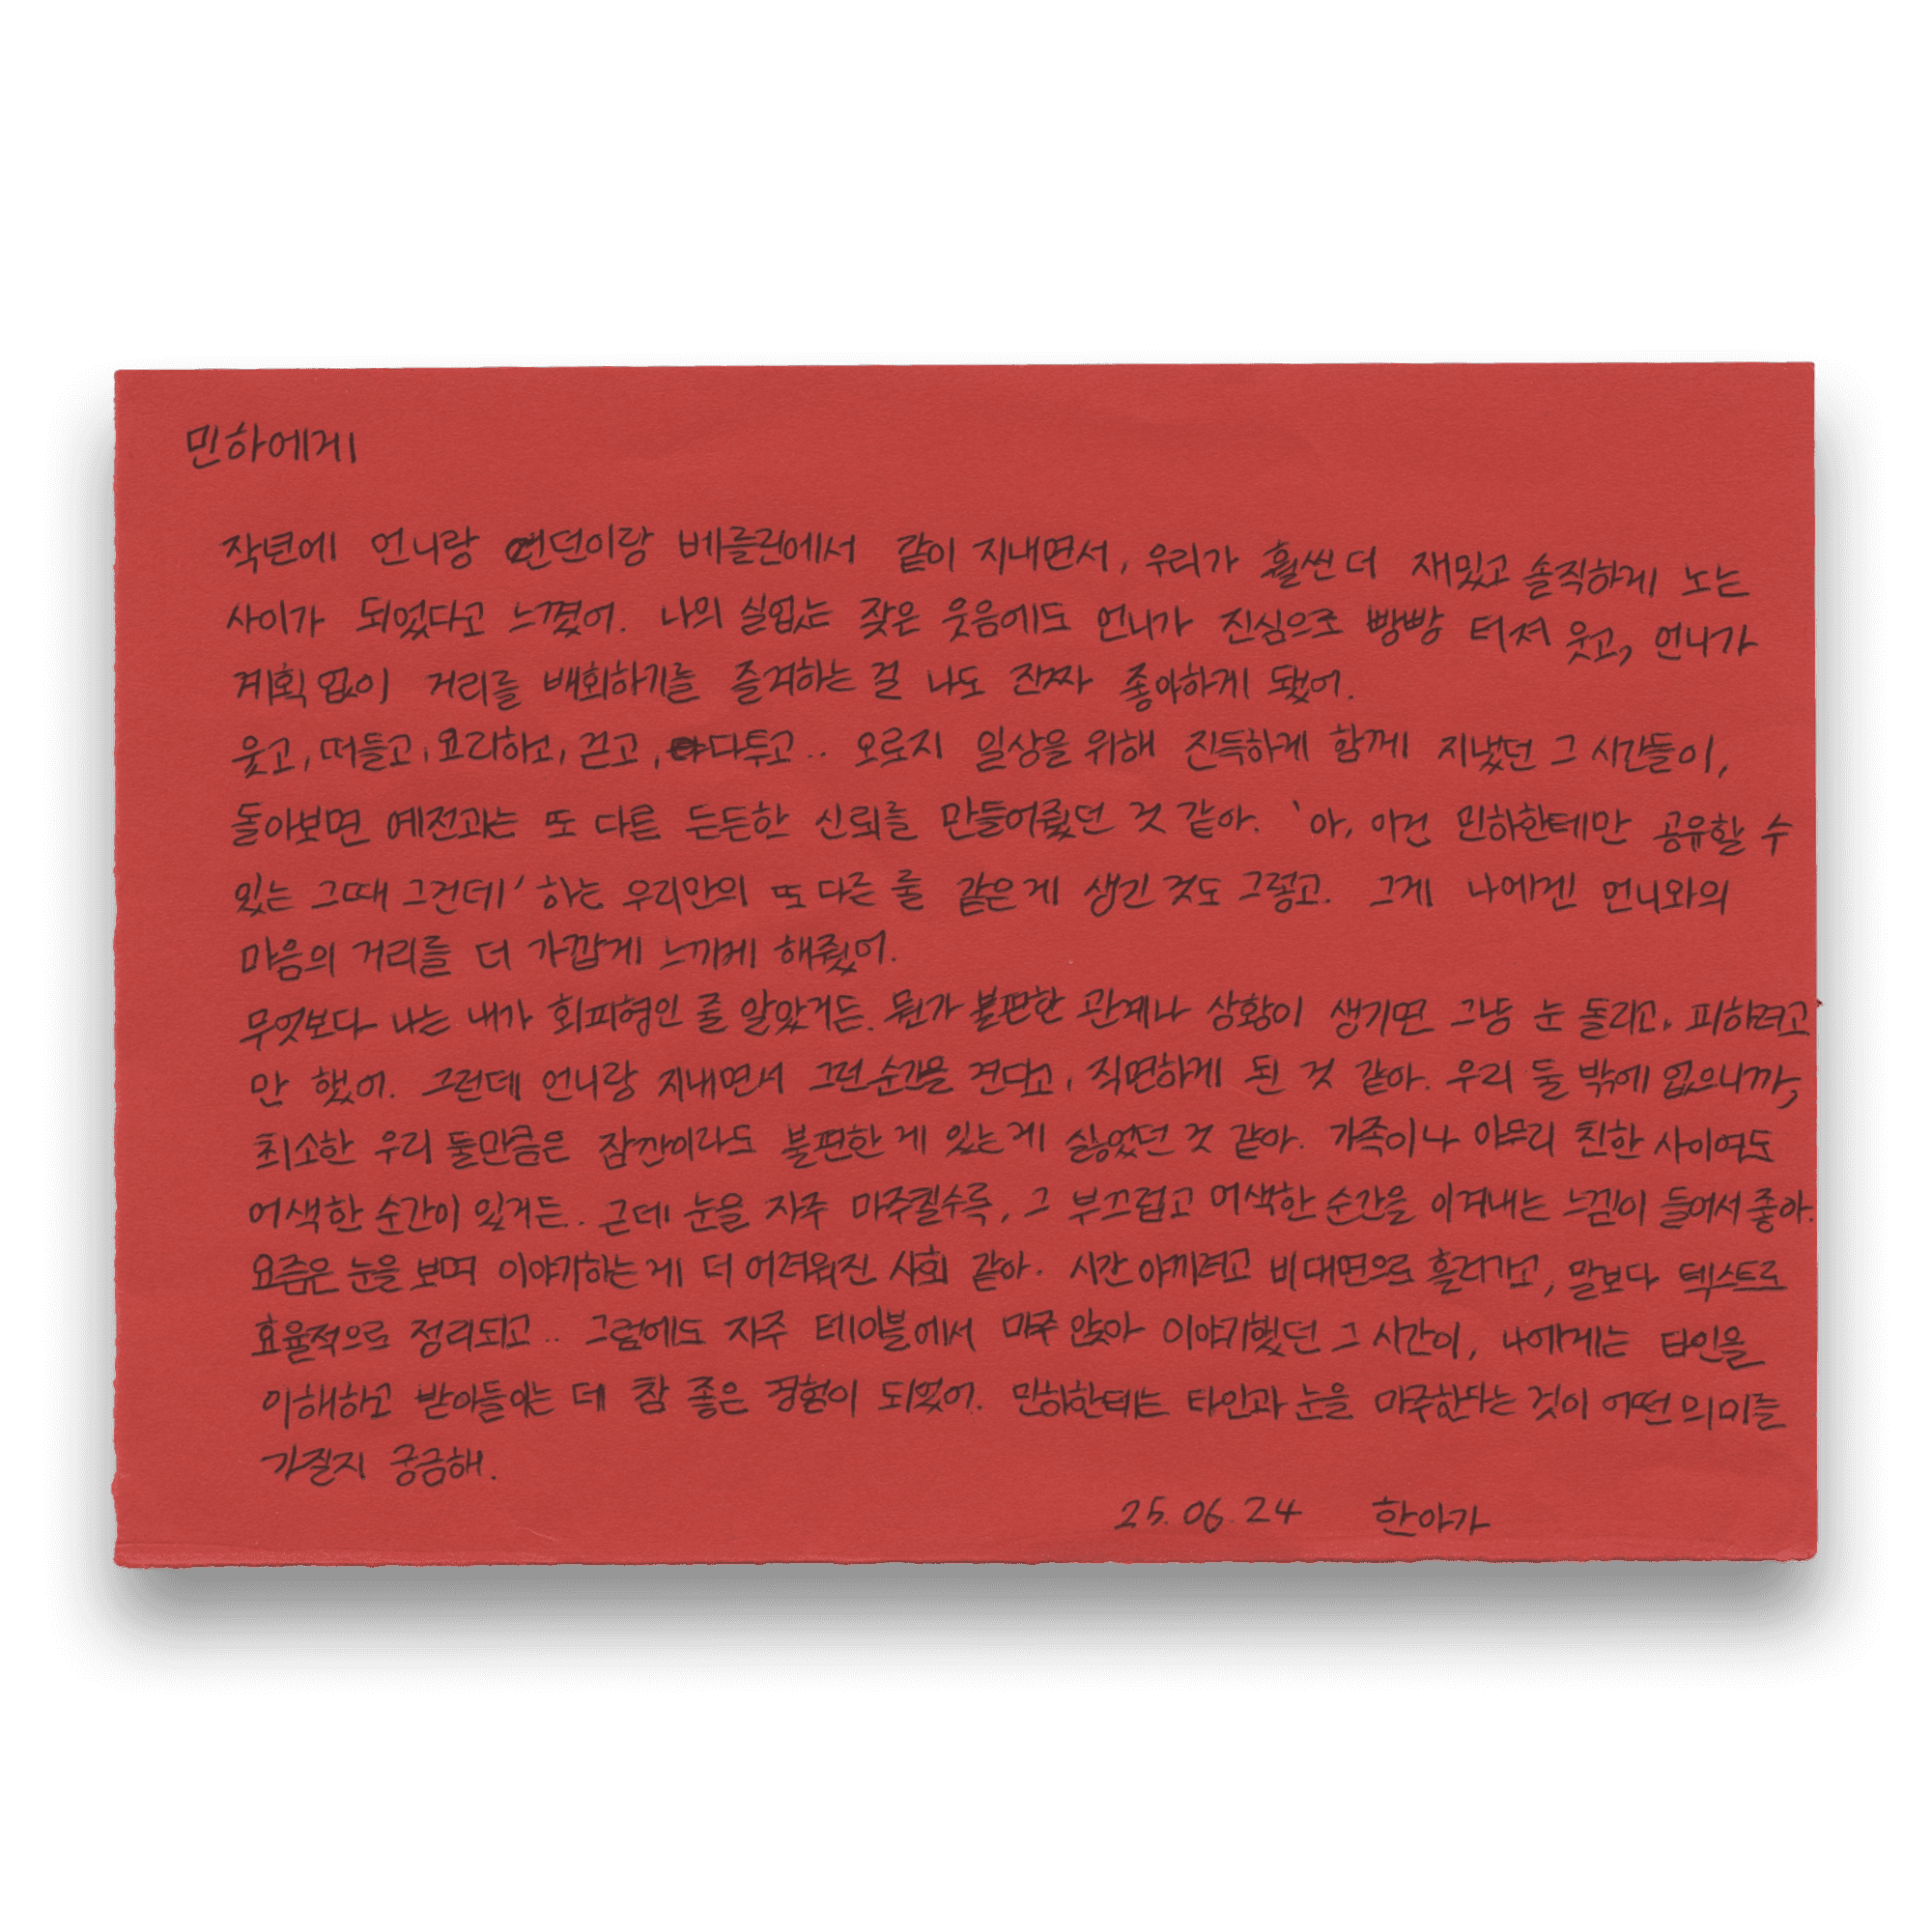 민하에게
작년에 언니랑 런던이랑 베를린에서 같이 지내면서, 우리가 훨씬 더 재밌고 솔직하게 노는
사이가 되었다고 느꼈어. 나의 실없는 잦은 웃음에도 언니가 진심으로 빵빵 터져 웃고, 언니가
계획 없이 거리를 배회하기를 즐겨하는 걸 나도 진짜 좋아하게 됐어.
웃고, 떠들고, 요리하고, 걷고, 다투고.. 오로지 일상을 위해 진득하게 함께 지냈던 그 시간들이,
돌아보면 예전과는 또 다른 든든한 신뢰를 만들어줬던 것 같아. '아, 이건 민하한테만 공유할 수
있는 그때 그건데' 하는 우리만의 또 다른 룰 같은 게 생긴 것도 그렇고. 그게 나에겐 언니와의
마음의 거리를 더 가깝게 느끼게 해줬어.
무엇보다 나는 내가 회피형인 줄 알았거든. 뭔가 불편한 관계나 상황이 생기면 그냥 눈 돌리고, 피하려고
만 했어. 그런데 언니랑 지내면서 그런 순간을 견디고, 직면하게 된 것 같아. 우리 둘 밖에 없으니까,
최소한 우리 둘만큼은 잠깐이라도 불편한 게 있는 게 싫었던 것 같아. 가족이나 아무리 친한 사이여도
어색한 순간이 있거든.. 근데 눈을 자주 마주칠수록, 그 부끄럽고 어색한 순간을 이겨내는 느낌이 들어서 좋아.
요즘은 눈을 보며 이야기하는 게 더 어려워진 사회 같아. 시간 아끼려고 비대면으로 흘러가고, 말보다 텍스트로
효율적으로 정리되고.. 그럼에도 자주 테이블에서 마주 앉아 이야기했던 그 시간이, 나에게는 타인을
이해하고 받아들이는 데 참 좋은 경험이 되었어. 민하한테는 타인과 눈을 마주한다는 것이 어떤 의미를
가질지 궁금해.
25.06.24 한아가